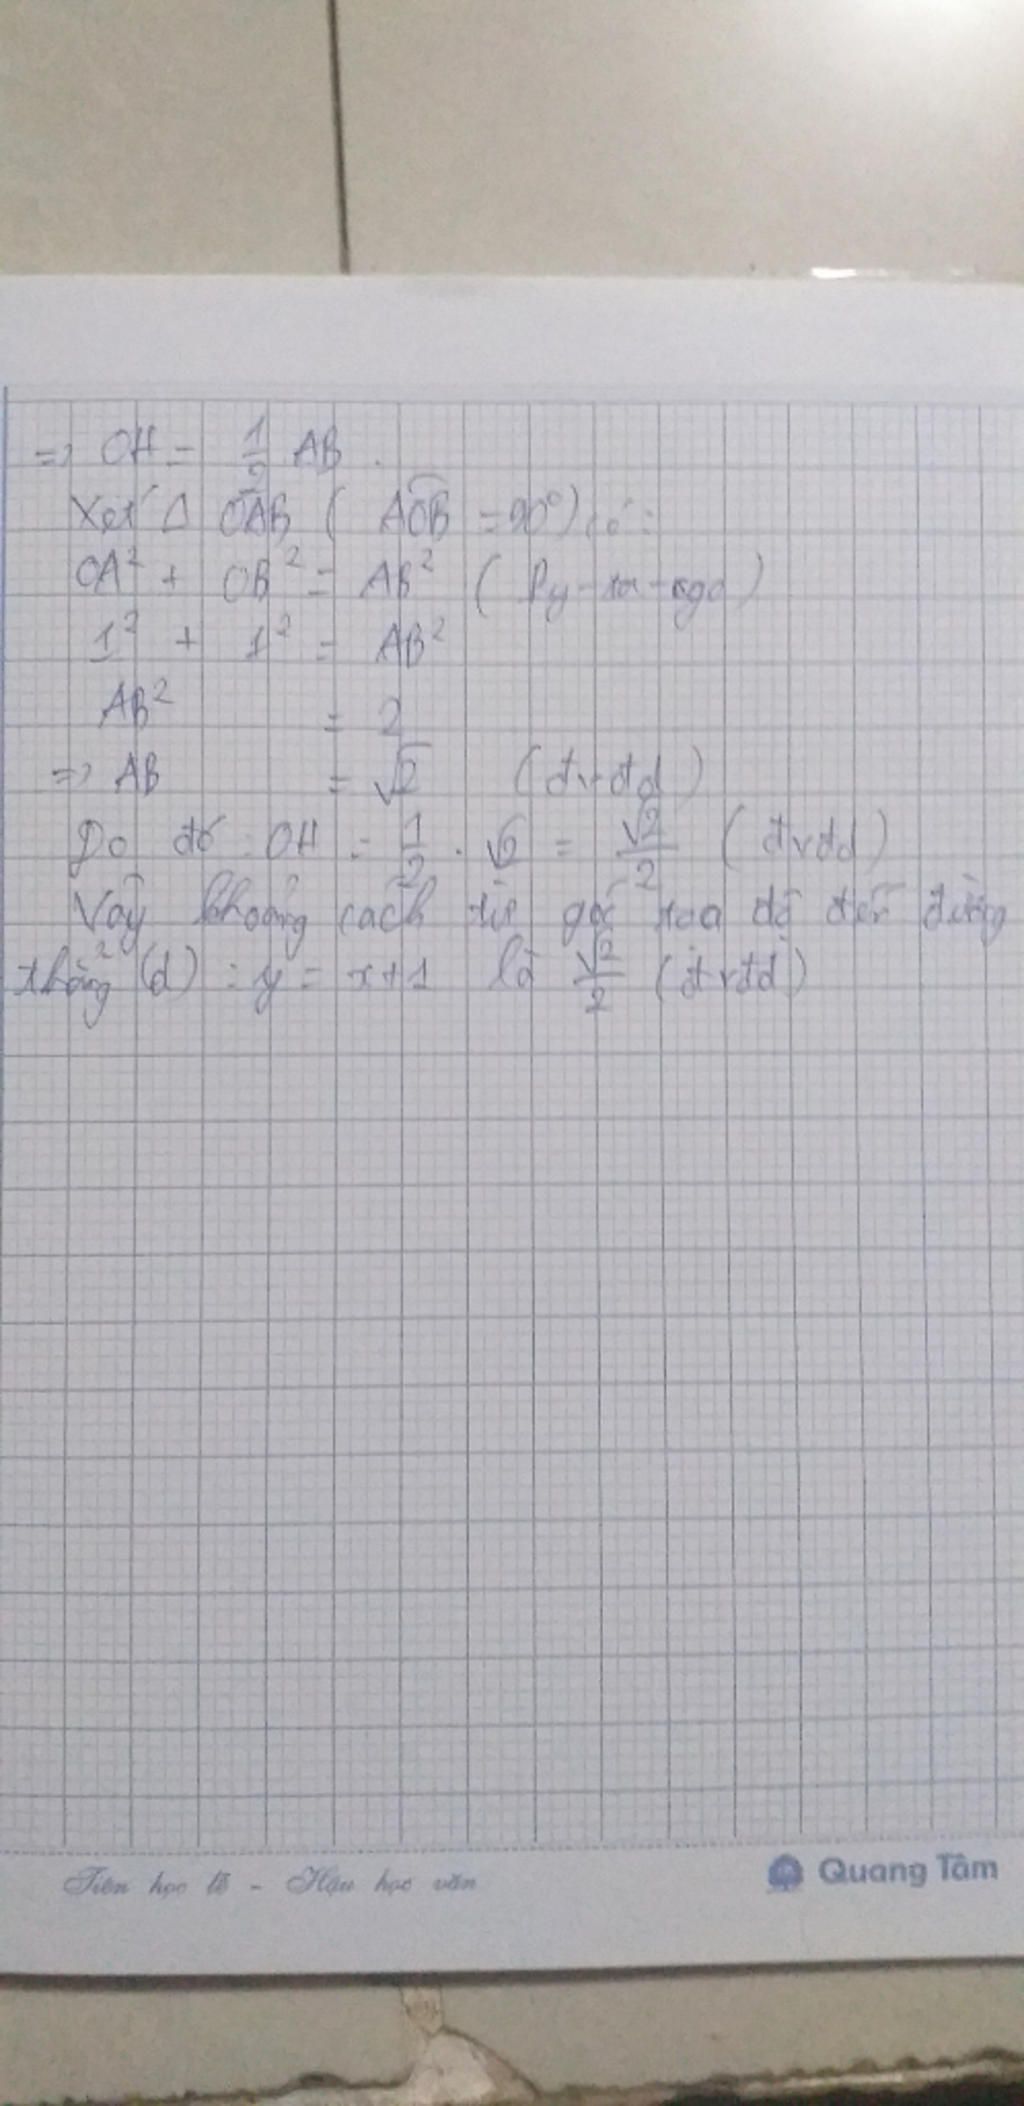 => OH = 1/2 AB.
Xét Δ OAB ( AÔB = 90°) có:
OA² + OB² = AB² ( Py-ta-ngo)
1² + 1² = AB²
AB² = 2
=> AB = √2 (đvđd)
Do đó: OH = 1/2 . √2 = √2/2 (đvđd)
Vậy khoảng cách từ gốc toạ độ đến đường
thẳng (d) : y = x+1 là √2/2 (đvđd)
Tiên học lễ - Hậu học văn
Quang Tâm